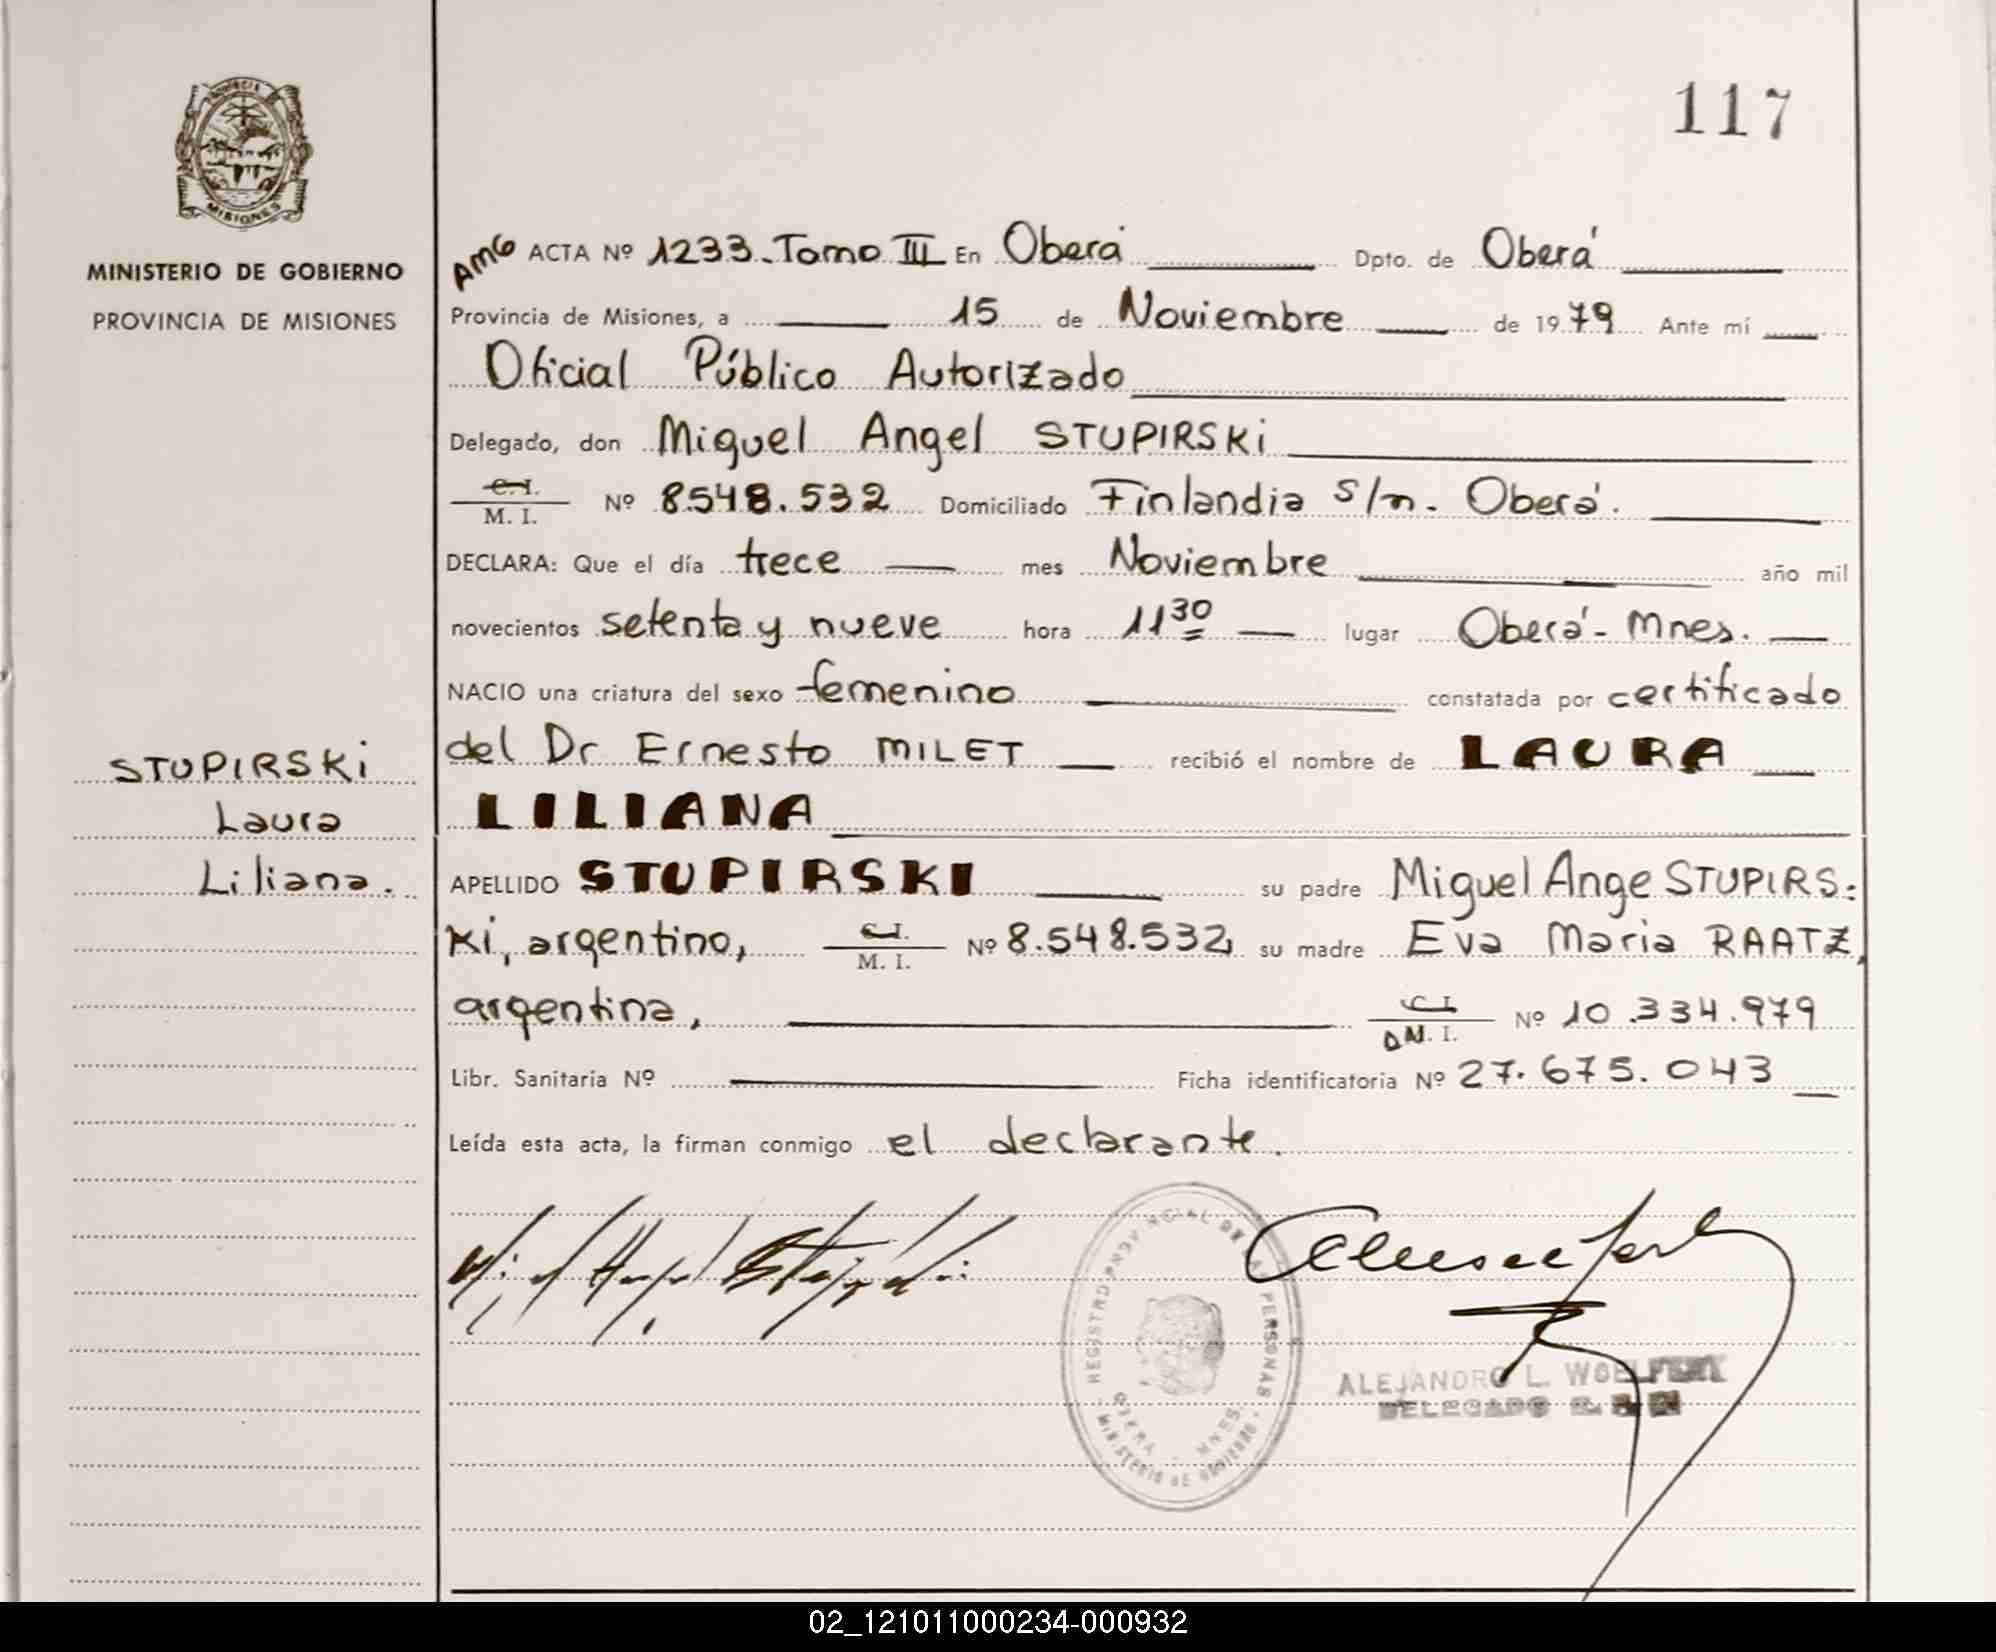 117
PROVINCIA DE
MISIONES
MINISTERIO DE GOBIERNO
PROVINCIA DE MISIONES
AMG ACTA Nº 1233. Tomo III En Oberá Dpto. de Oberá
Provincia de Misiones, a 15 de Noviembre de 1979 Ante mí
Oficial Público Autorizado
Delegado, don Miguel Angel STUPIRSKi
C. I.
M. I. Nº 8548.532 Domiciliado Finlandia s/n. Oberá.
DECLARA: Que el día trece mes Noviembre año mil
novecientos setenta y nueve hora 11 30 lugar Oberá - Mnes.
NACIO una criatura del sexo femenino constatada por certificado
del Dr Ernesto MILET recibió el nombre de LAURA
LILIANA
STUPIRSKi
Laura
Liliana.
APELLIDO STUPIRSKI su padre Miguel Ange STUPIRS=
Ki, argentino, C. I. M. I. Nº 8.548.532 su madre Eva Maria RAATZ,
argentina, C. I. D M. I. Nº 10.334.979
Libr. Sanitaria Nº Ficha identificatoria Nº 27.675.043
Leída esta acta, la firman conmigo el declarante.
REGISTRO PROVINCIAL DE LAS PERSONAS
OBERA - MNES.
MINISTERIO DE GOBIERNO
ALEJANDRO L. WOELFERT
DELEGADO
02_121011000234-000932